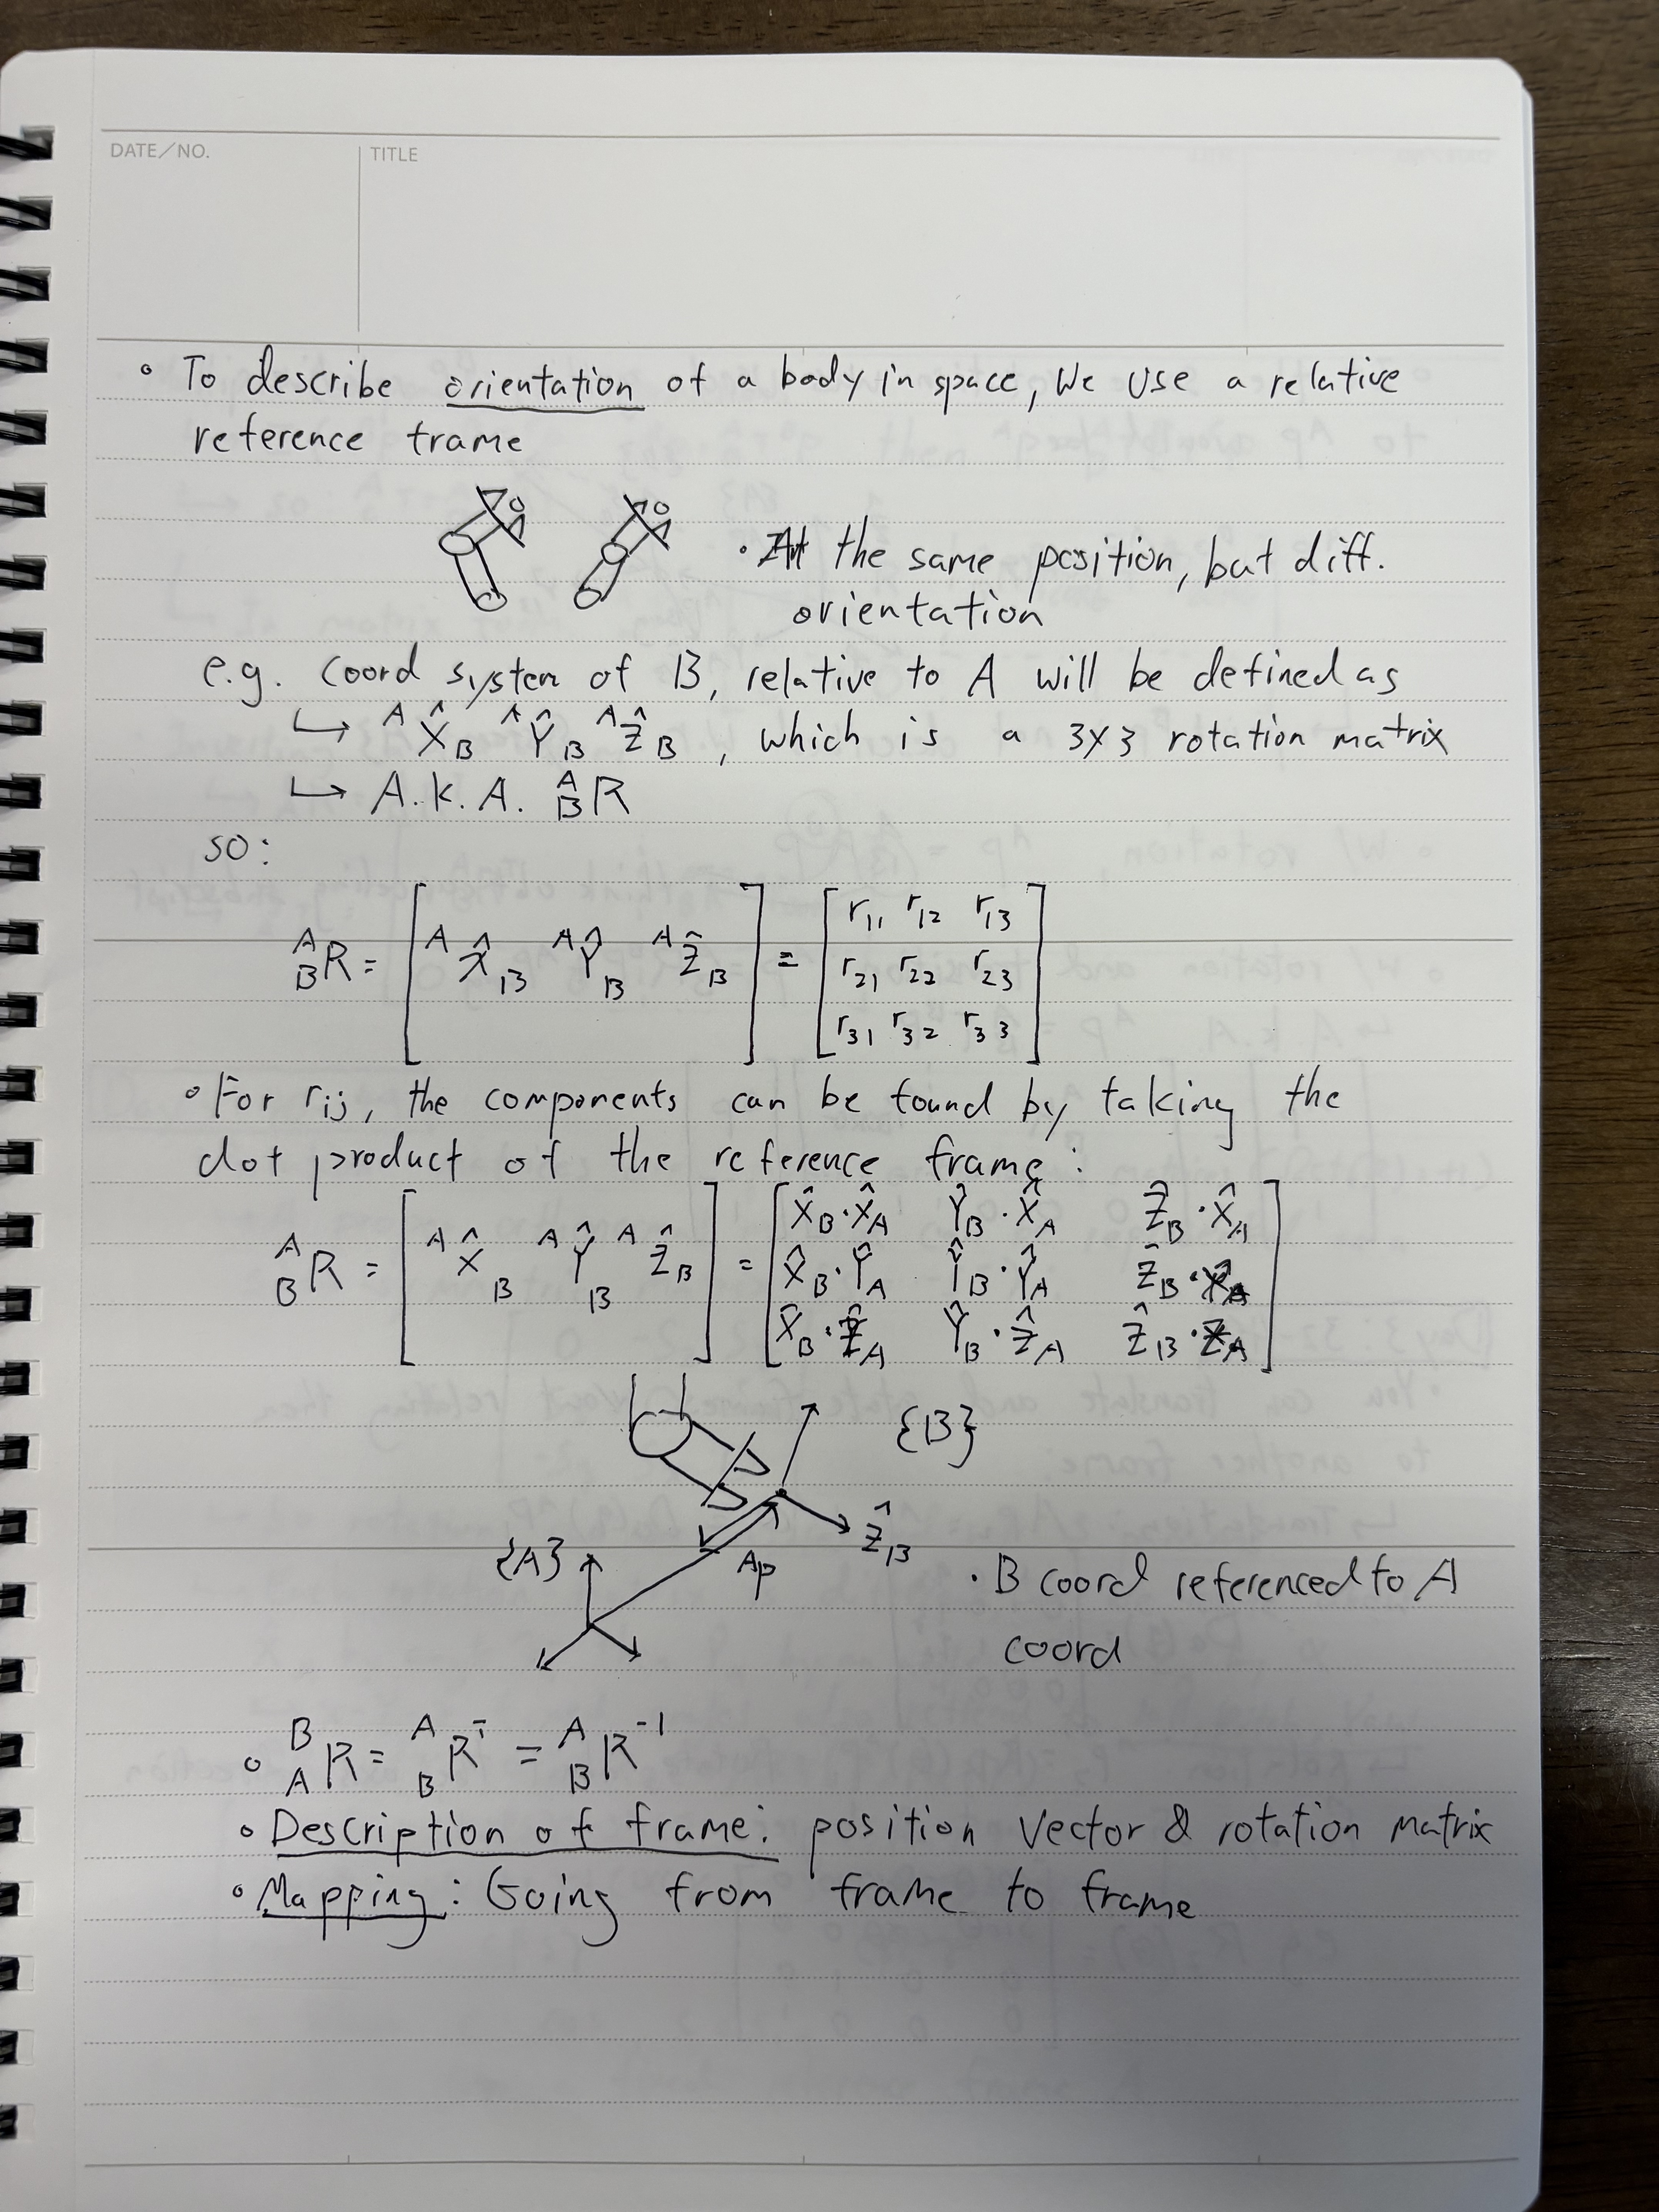 DATE/NO.
TITLE
◦ To describe orientation of a body in space, We use a relative
reference frame
• At the same position, but diff.
orientation
e.g. Coord system of B, relative to A will be defined as
↳ ᴬX̂_B ᴬŶ_B ᴬẐ_B, which is a 3x3 rotation matrix
↳ A.K.A. ᴬ_B R
so:
ᴬ_B R = [ ᴬX̂_B ᴬŶ_B ᴬẐ_B ] = [ r₁₁ r₁₂ r₁₃
r₂₁ r₂₂ r₂₃
r₃₁ r₃₂ r₃₃ ]
◦ For rij, the components can be found by taking the
dot product of the reference frame:
ᴬ_B R = [ ᴬX̂_B ᴬŶ_B ᴬẐ_B ] = [ X̂_B·X̂_A Ŷ_B·X̂_A Ẑ_B·X̂_A
X̂_B·Ŷ_A Ŷ_B·Ŷ_A Ẑ_B·
X̂_B·Ẑ_A Ŷ_B·Ẑ_A Ẑ_B·Z_A ]
{B}
Ẑ_B
{A}
ᴬp
• B coord referenced to A
coord
◦ ᴮ_A R = ᴬ_B Rᵀ = ᴬ_B R⁻¹
◦ Description of frame: position vector & rotation matrix
◦ Mapping: Going from frame to frame